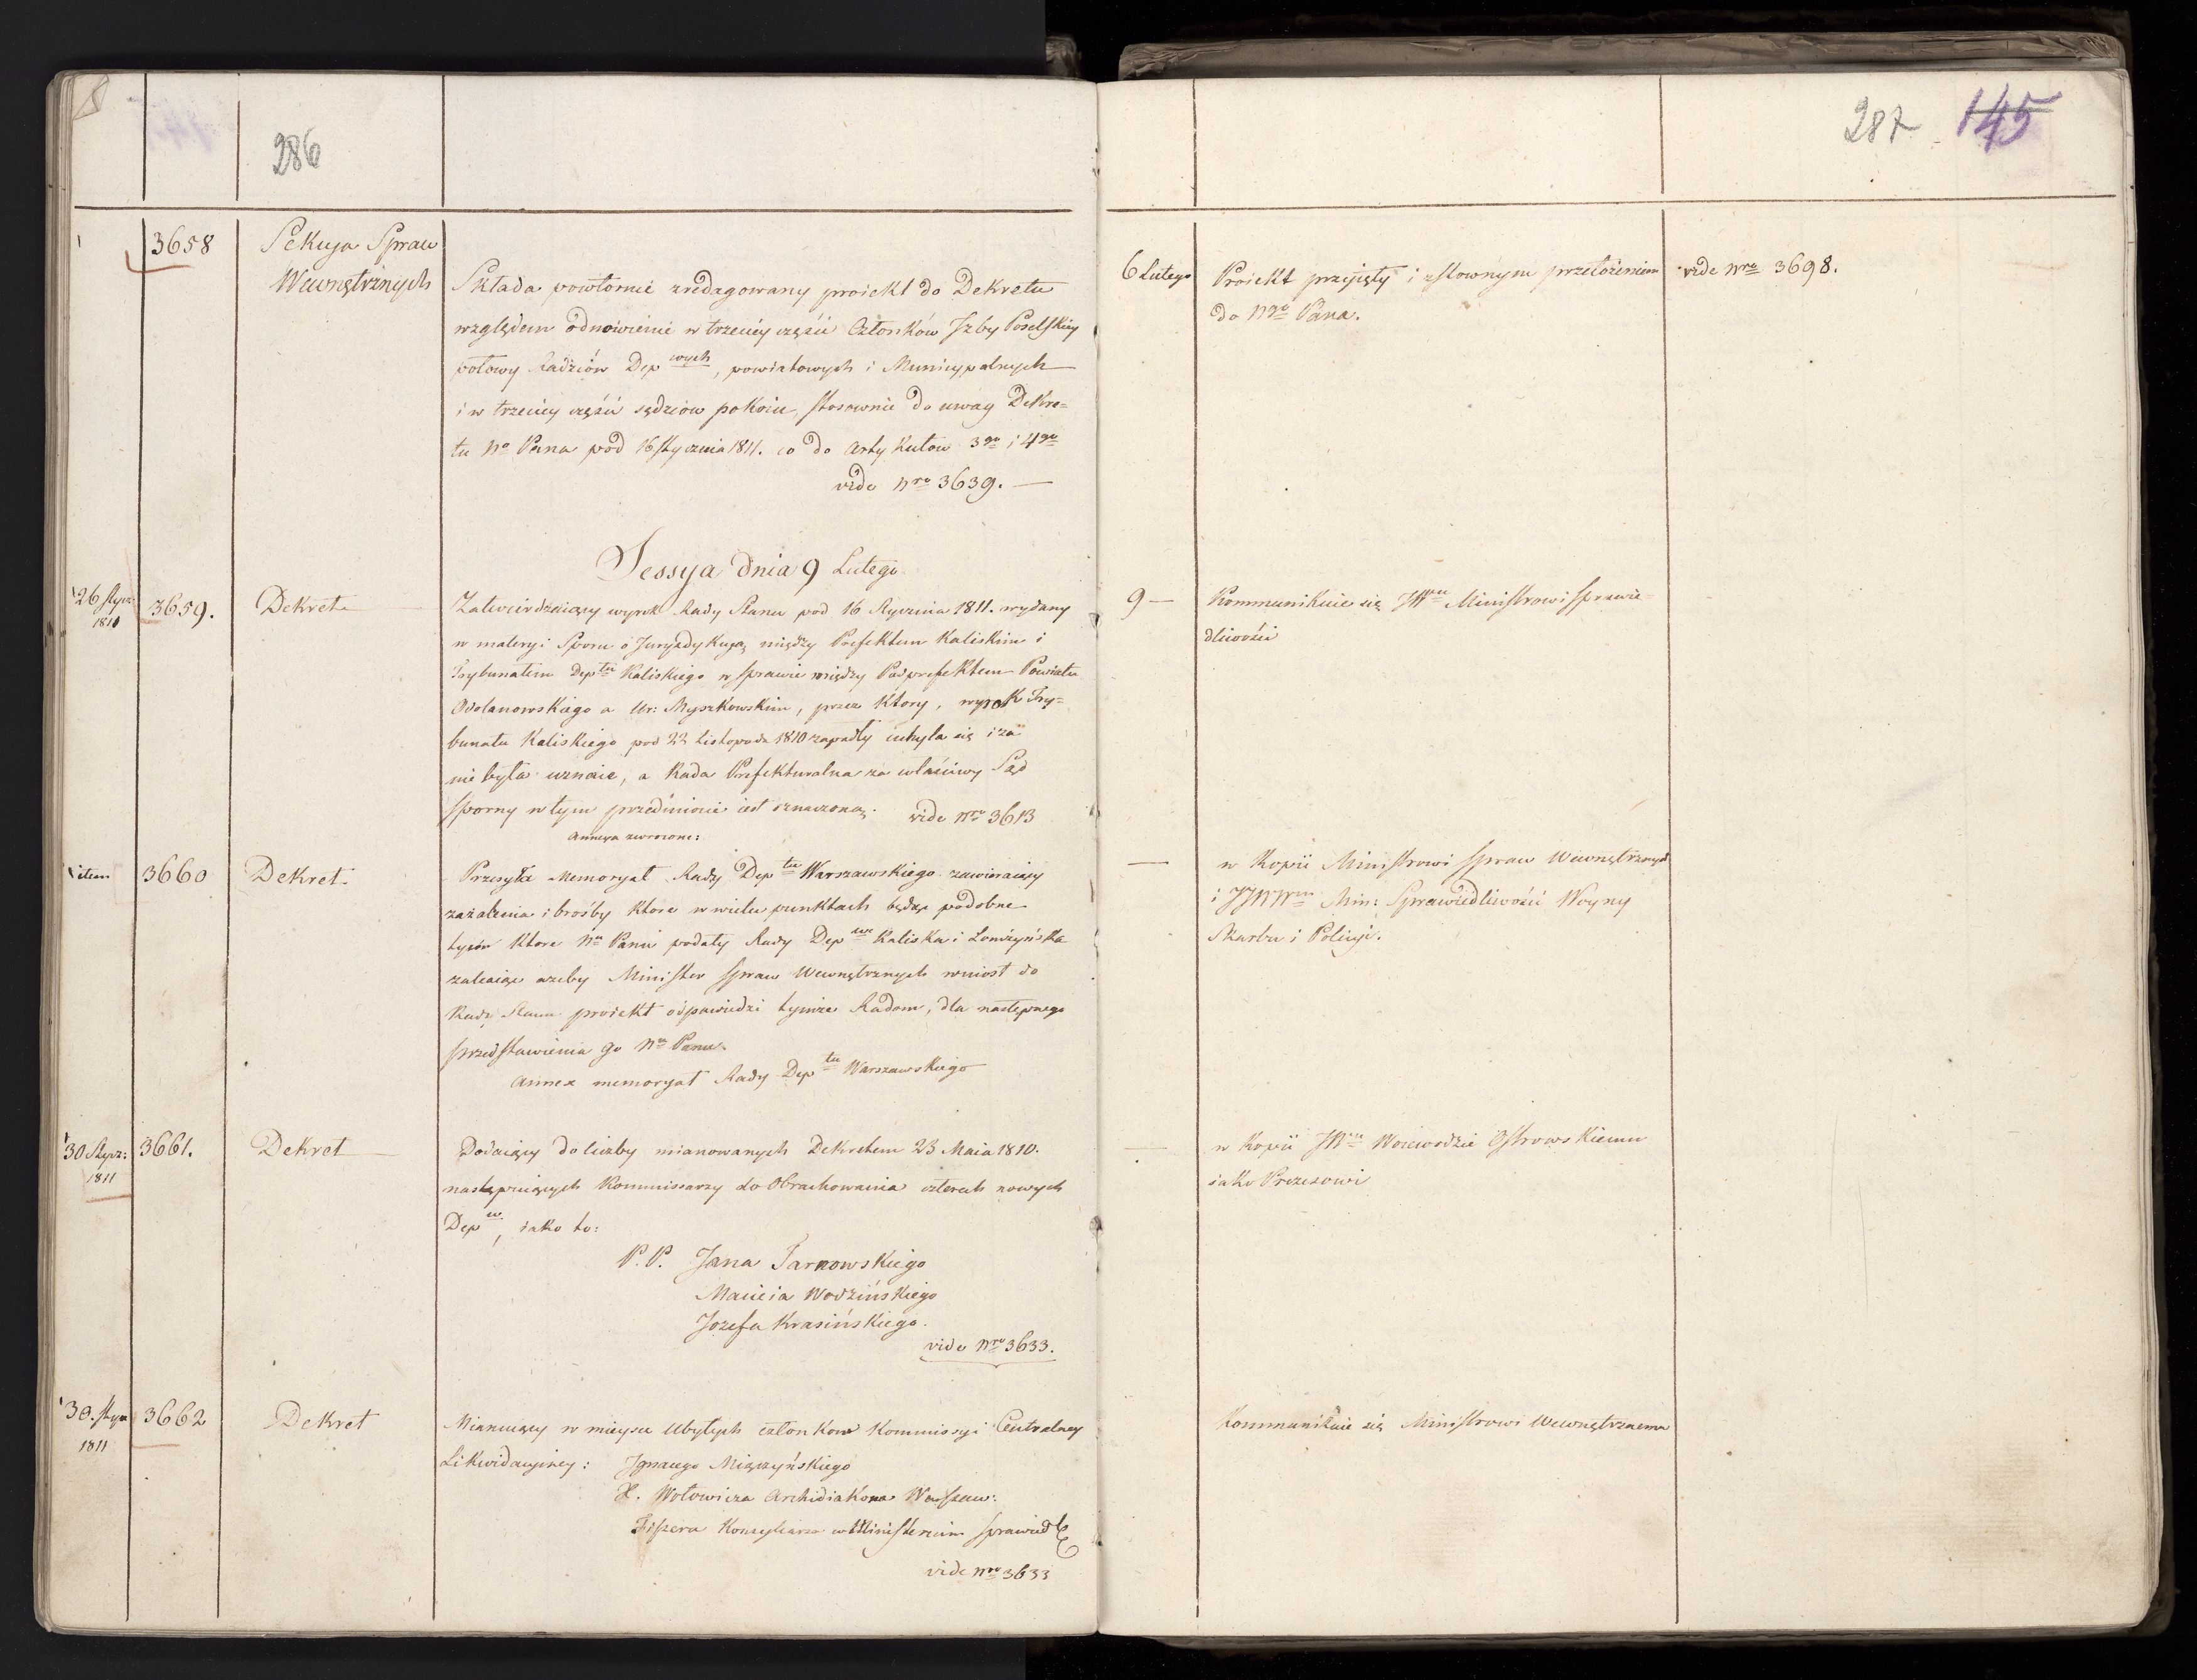 286
3658
Sekcya Spraw
Wewnętrznych
Składa powtornie zredagowany proiekt do Dekretu
względem odnowienie w trzeciey części Członków Jzby Poselskiey
połowy Radziów Dep wych, powiatowych i Municypalnych
i w trzeciey części sędziow pokoiu, stosownie do uwag Dekre=
tu No Pana pod 16 stycznia 1811. co do Artykułow 3go i 4go
vide Nro 3639. —
Sessya dnia 9 Lutego.
26 stycz:
1811
3659.
Dekret
Zatwierdzaiący wyrok Rady Stanu pod 16 Stycznia 1811. wydany
w materyi Sporu o Juryzdykcyą między Prefektem Kaliskim i
Trybunałem Deptu Kaliskiego w sprawie między Podprefektem Powiatu
Odolanowskiego a Ur: Myszkowskim, przez ktory, wyrok Try=
bunału Kaliskiego pod 22 Listopada 1810 zapadły uchyla się i za
nie byłą uznaie, a Rada Prefekturalna za właściwy Sąd
sporny w tym przedmiocie iest oznaczoną.
vide Nro 3613
Annexa zwrocone:
item
3660
Dekret.
Przesyła Memoryał Rady Dep tu Warszawskiego zawieraiący
zażalenia i prośby ktore w wielu punktach będąc podobne
tymże ktore Nu Panu podały Rady Dep we Kaliska i Łomżyńska
zalecaiąc ażeby Minister Spraw Wewnętrznych wniost do
Rady Stanu proiekt odpowiedzi tymże Radom, dla następnego
przedstawienia go Nu Panu.
Annex memoryał Rady Dep tu Warszawskiego
30 Stycz:
1811
3661.
Dekret
Dodaiący do liczby mianowanych Dekretem 23 Maia 1810.
następuiących Kommissarzy do Obrachowania czterech nowych
Dep w, iako to:
P. P. Jana Tarnowskiego
Macieia Wodzińskiego
Jozefa Krasińskiego.
vide Nro 3633.
30. stycz
1811
3662
Dekret
Mianuiący w mieysce Ubyłych członkow Kommissyi Centralney
Likwidacyiney: Jgnacego Miączyńskiego
X. Wołowicza Archidiakona Warszaw:
Fiszera Konsyliarza w Ministerium sprawiedl
vide Nro 3633
287 145
6 Lutego
Proiekt przyięty i z stownym przełożeniem
do Ngo Pana.
vide Nro 3698.
9 —
Kommunikuie się JWmu Ministrowi Sprawie=
dliwości
—
w Kopii Ministrowi Spraw Wewnętrznych
i JJWWm Min: Sprawiedliwości Woyny
Skarbu i Policyi.
—
w Kopii JWmu Woiewodzie Ostrowskiemu
iako Prezesowi
Kommunikuie się Ministrowi Wewnętrznemu